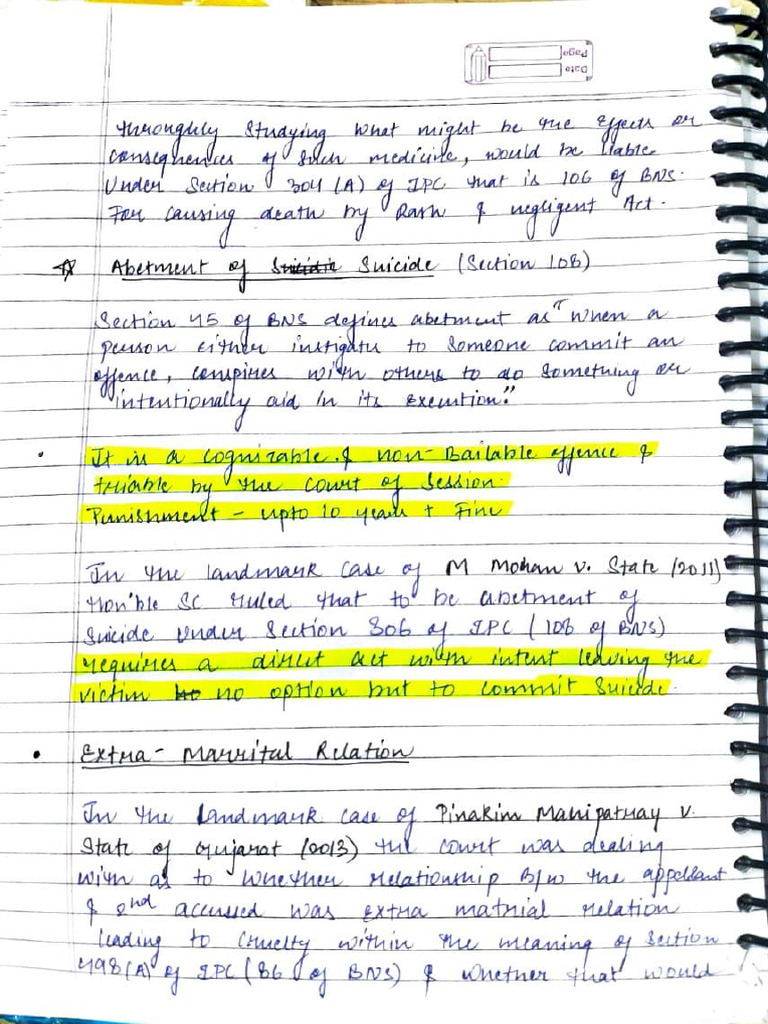 Page
Date
throughly studying what might be the effects or
consequences of such medicine, would be liable
under Section 304 (A) of IPC that is 106 of BNS.
For causing death by Rash & negligent Act.
☆ Abetment of Suicide (Section 108)
Section 45 of BNS defines abetment as "When a
person either instigate to someone commit an
offence, conspires with others to do something or
intentionally aid in its execution."
• It is a cognizable & non-Bailable offence &
triable by the Court of Session.
Punishment - upto 10 years + Fine
In the landmark case of M Mohan v. State (2011)
Hon'ble SC ruled that to be abetment of
Suicide under Section 306 of IPC (108 of BNS)
requires a direct act with intent leaving the
victim no option but to commit Suicide.
• Extra-Marrital Relation
In the landmark case of Pinakim Mahipatray v.
State of Gujarat (2013) the court was dealing
with as to whether relationship B/w the appellant
& 2nd accused was extra matrial relation
leading to cruelty within the meaning of Section
498(A) of IPC (86 of BNS) & whether that would